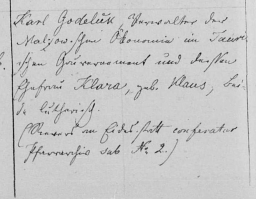 Karl Godeluk, Verwalter der
Malzowschen Ökonomie im Tauri-
schen Gouvernement und dessen
Ehefrau Klara, geb. Klaus, bei-
de lutherisch.
(Revers an Eides statt conferatur
Pfarrarchiv sub No 2.)